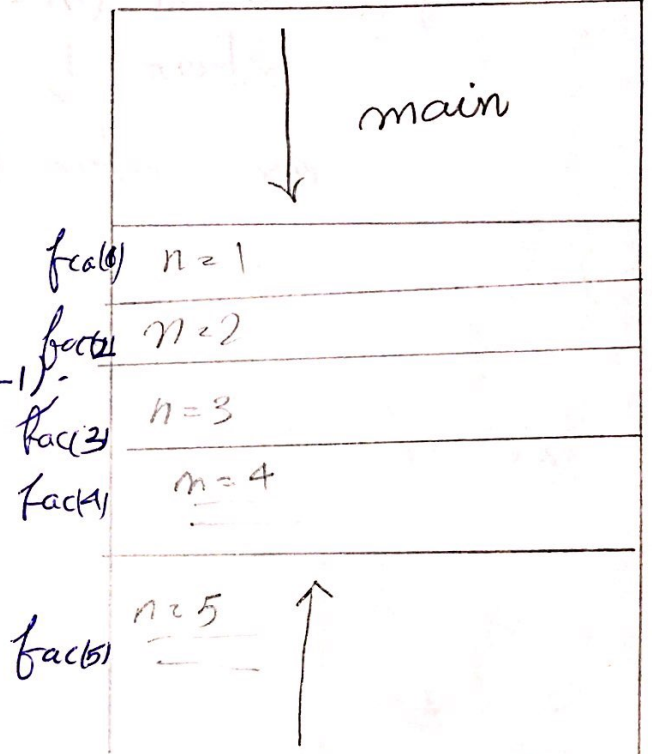 main
fca(1) n = 1
fac(2) n = 2
-1) .
fac(3) n = 3
fac(4) n = 4
fac(5) n = 5